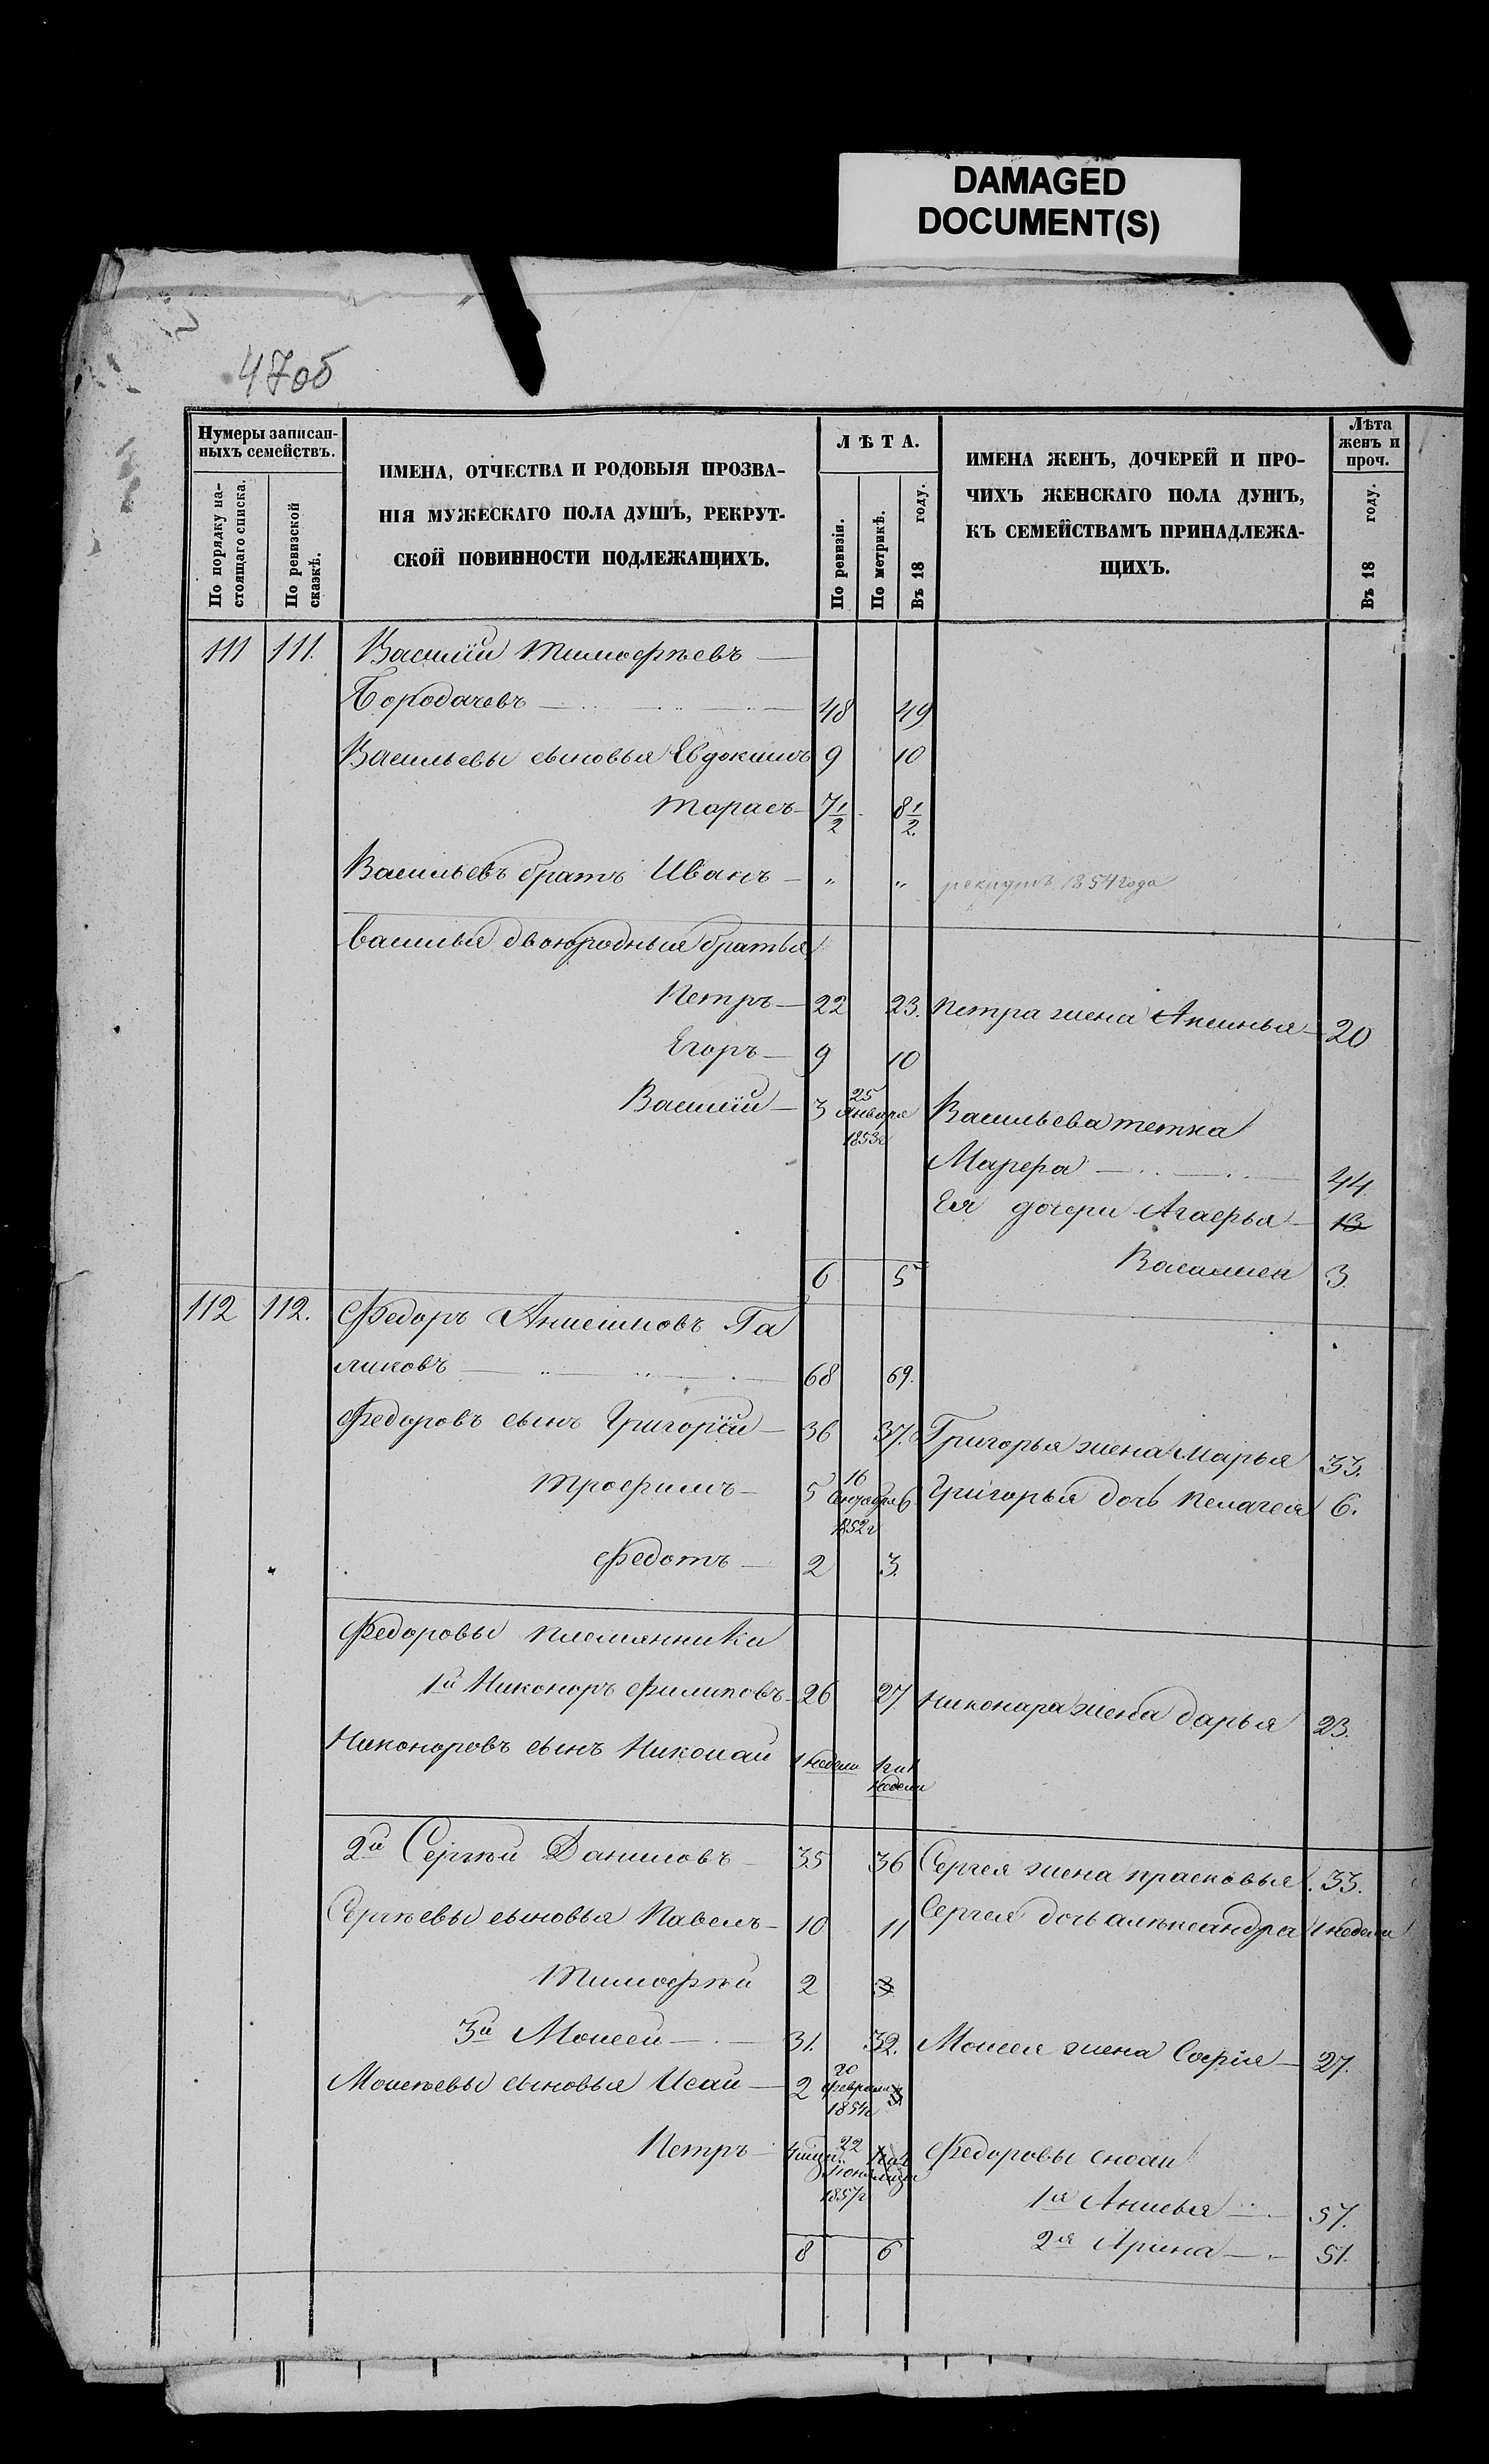 DAMAGED
DOCUMENT(S)
47об
Нумеры записан-
ныхъ семействъ.
По порядку на-
стоящаго списка.
По ревизской
сказкѣ.
ИМЕНА, ОТЧЕСТВА И РОДОВЫЯ ПРОЗВА-
НІЯ МУЖЕСКАГО ПОЛА ДУШЪ, РЕКРУТ-
СКОЙ ПОВИННОСТИ ПОДЛЕЖАЩИХЪ.
ЛѢТА.
По ревизіи.
По метрикѣ.
Въ 18 году.
ИМЕНА ЖЕНЪ, ДОЧЕРЕЙ И ПРО-
ЧИХЪ ЖЕНСКАГО ПОЛА ДУШЪ,
КЪ СЕМЕЙСТВАМЪ ПРИНАДЛЕЖА-
ЩИХЪ.
Лѣта
женъ и
проч.
Въ 18 году.
111 111. Василій Тимофѣевъ
Бородачевъ 48 49
Васильевы сыновья Евдокимъ 9 10
Тарасъ 7 1/2 8 1/2.
Васильевъ братъ Иванъ " " рекрутъ 1854 года
Василья двоюродныя братья
Петръ 22 23. Петра жена Аксинья 20
Егоръ 9 10
Василій 3 25 Января 1853г Васильева тетка
Марфа 44.
Ея дочери Агафья 13
Василиса 3.
6 5
112 112. Федоръ Анисимовъ Га
ликовъ 68 69.
Федоровъ сынъ Григорій 36 37. Григорья жена Марья 33.
Трофимъ 5 16 Сентября 1852г 6 Григорья дочь Пелагея 6.
Федотъ 2 3.
Федоровы племянники
1й Никоноръ Филиповъ 26 27 Никонара жена дарья 23.
Никоноровъ сынъ Николай 1 недели 1 г и 1 недели
2й Сергѣй Даниловъ 35 36 Сергея жена прасковья 33.
Сергѣевы сыновья Павелъ 10 11 Сергея дочь алѣксандра 1 недели
Тимофѣй 2 3
3й Моисей 31. 32. Моисея жена Софія 27.
Моисѣевы сыновья Исай 2 20 Февраля 1854г 3
Петръ 22 1857г Федоровы снохи
1я Анисья 57.
2я Арина 51.
8 6